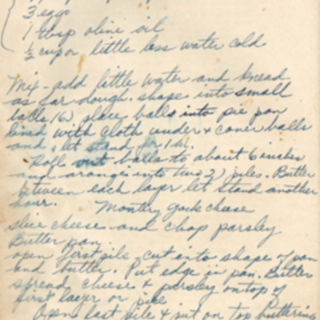 3 eggs
1 tbsp olive oil
½ cup or little less water cold
Mix - add little water and knead
as for dough. Shape into small
balls (6) place balls into pie pan
lined with cloth under & cover balls
and let stand for 1 hr.
Roll out balls to about 6 inches
and arrange into two (2) piles. Butter
between each layer let stand another
hour.
Montery Jack cheese
slice cheese and chop parsley
Butter pan.
open first pile, cut into shape of pan
and butter. Put edge in pan. Butter
spread cheese & parsley on top of
first layer or pile
Open last pile & put on top buttering